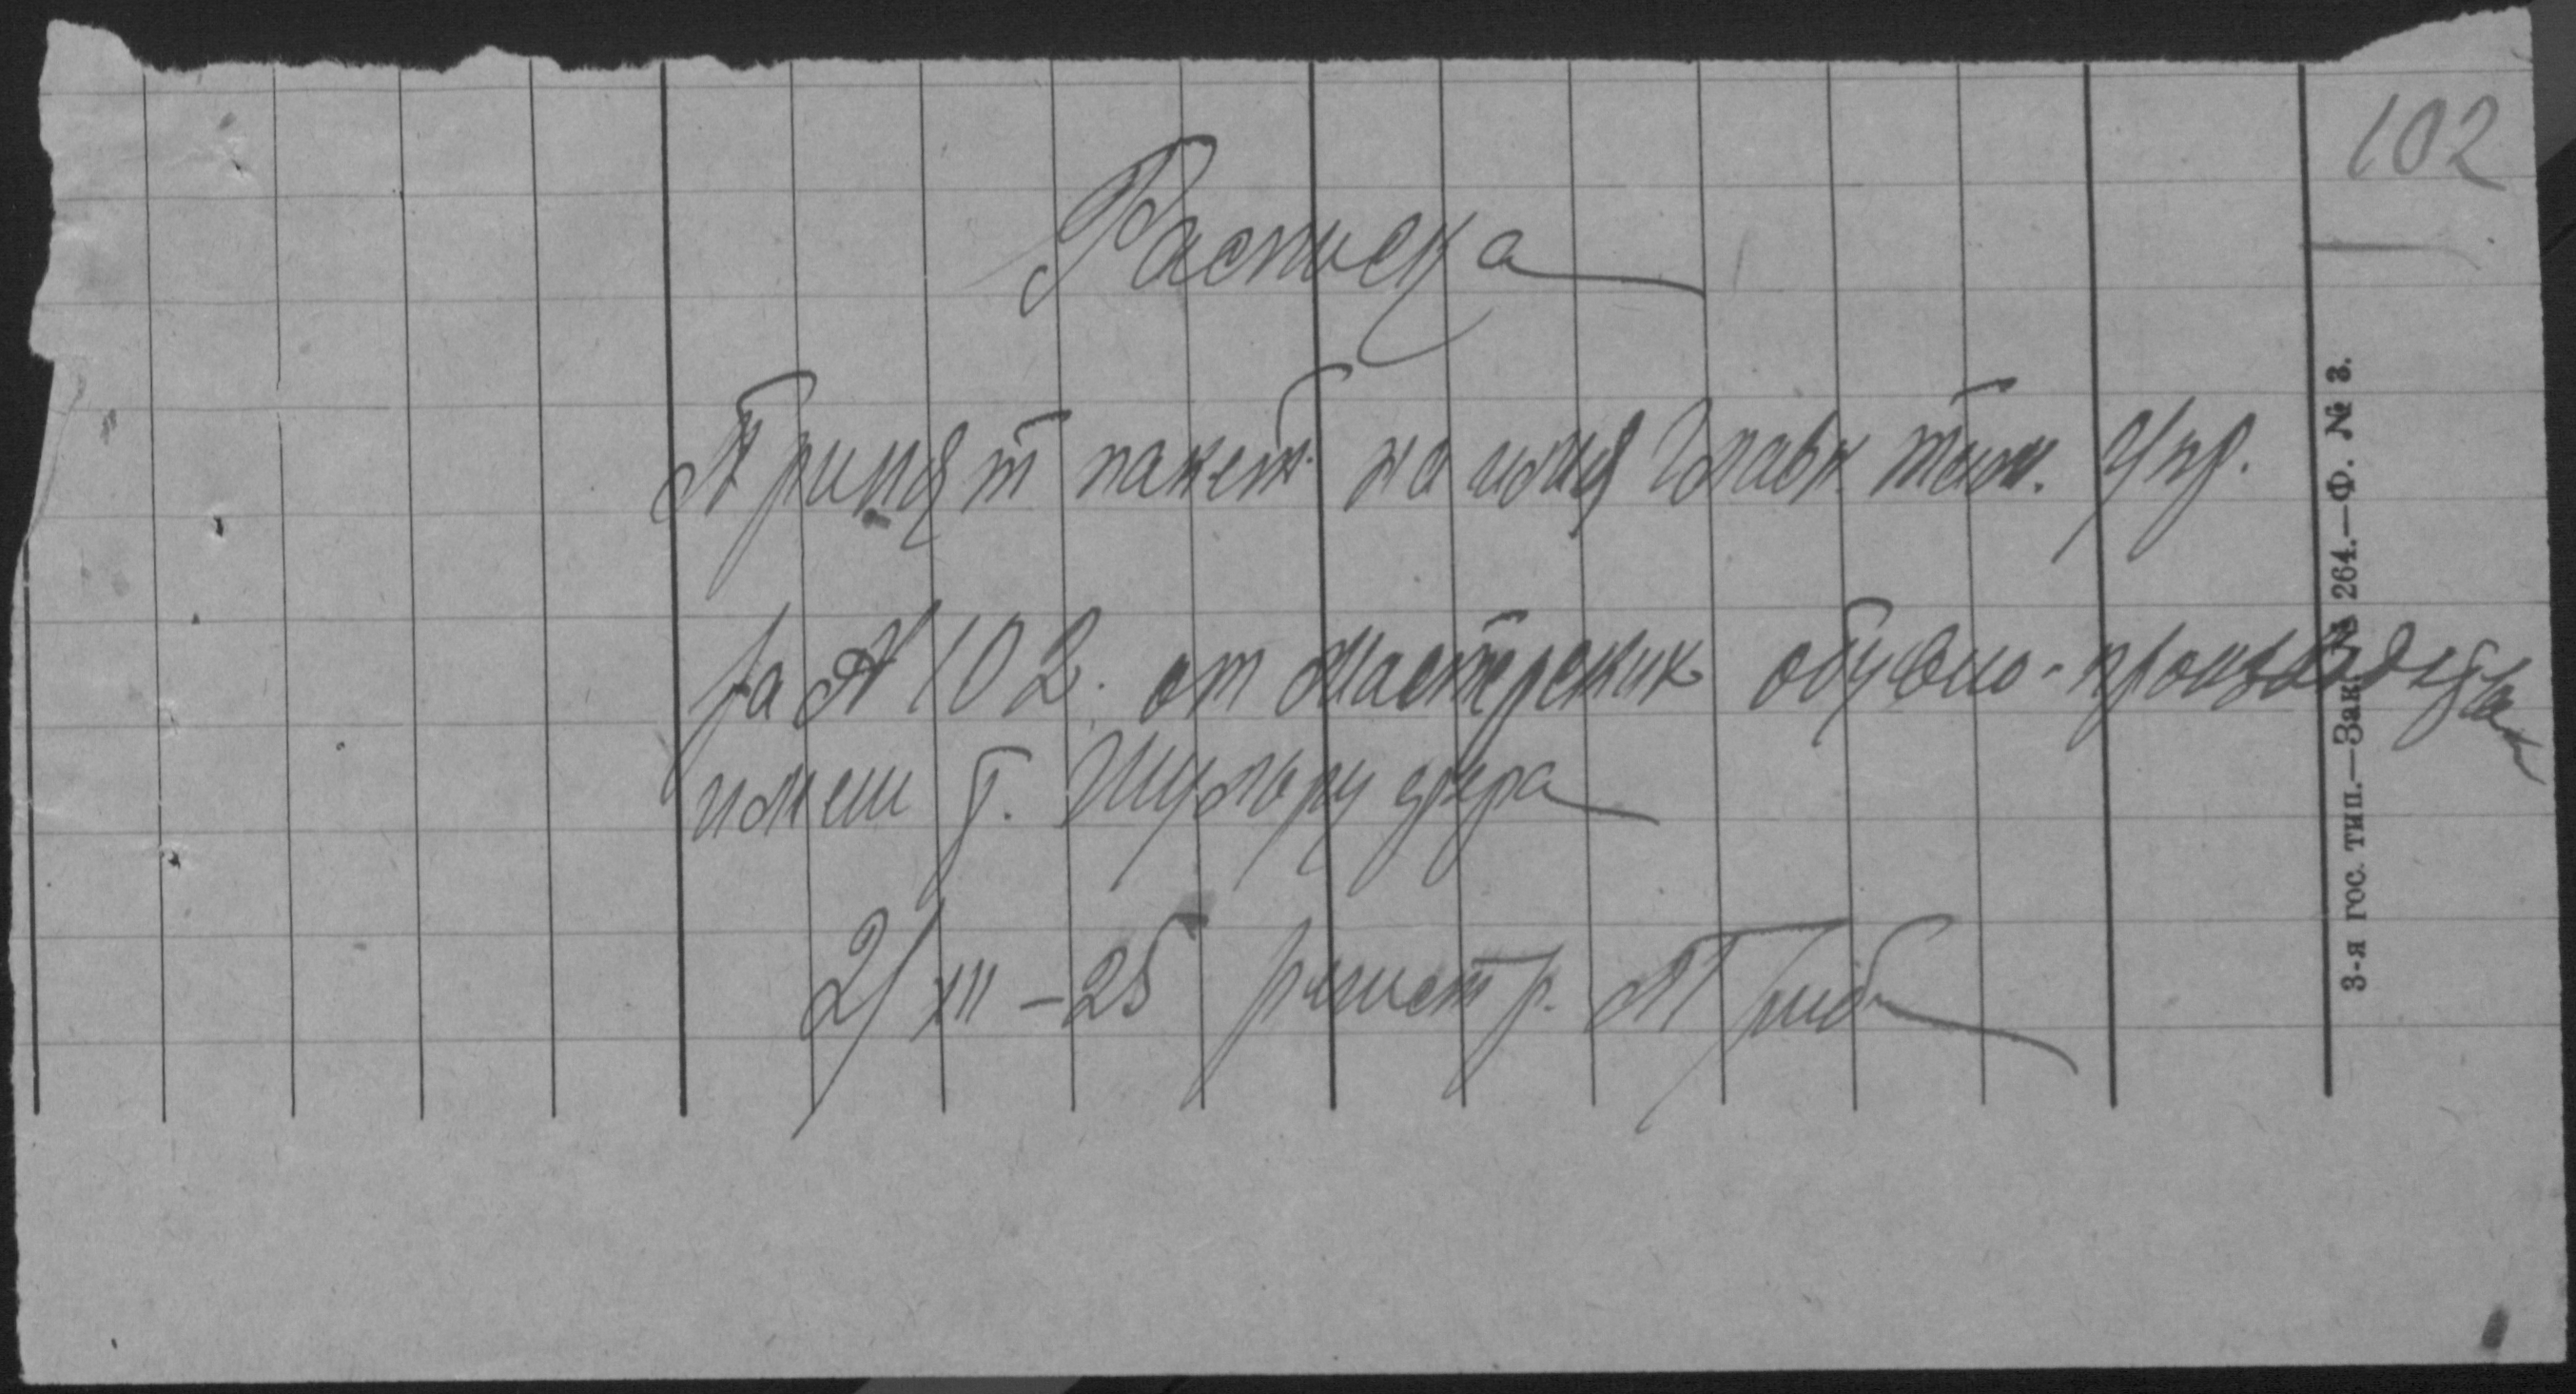 102
Расписка
Принят пакет на имя Главн. тюм. Упр.
за № 102. от Мастерских обувно-производства
имени т.
2/XII – 25 регистр.
3-я гос. тип.—Зак. № 264.—Ф. № 3.